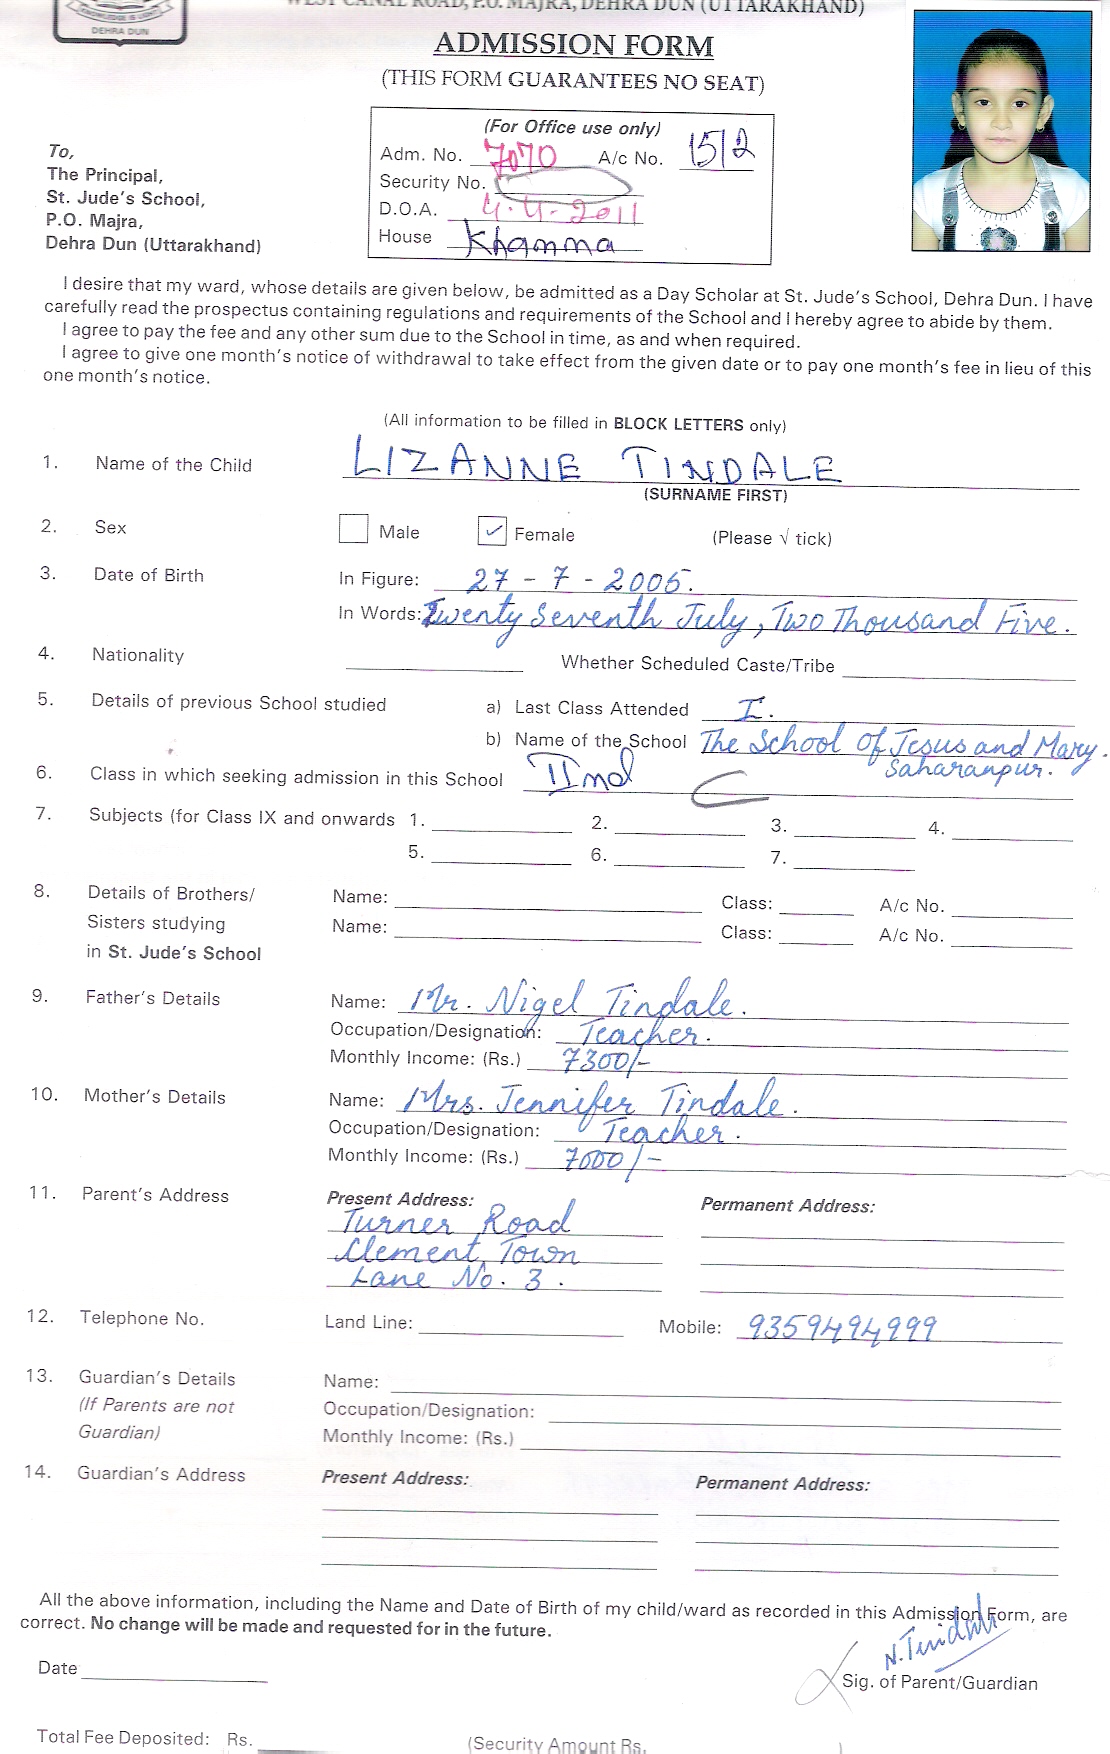 KNOWLEDGE IS LIGHT
DEHRA DUN
WEST CANAL ROAD, P.O. MAJRA, DEHRA DUN (UTTARAKHAND)
ADMISSION FORM
(THIS FORM GUARANTEES NO SEAT)
To,
The Principal,
St. Jude's School,
P.O. Majra,
Dehra Dun (Uttarakhand)
(For Office use only)
Adm. No. 7070 A/c No. 1512
Security No.
D.O.A. 4.4.2011
House Khanna
I desire that my ward, whose details are given below, be admitted as a Day Scholar at St. Jude's School, Dehra Dun. I have
carefully read the prospectus containing regulations and requirements of the School and I hereby agree to abide by them.
I agree to pay the fee and any other sum due to the School in time, as and when required.
I agree to give one month's notice of withdrawal to take effect from the given date or to pay one month's fee in lieu of this
one month's notice.
(All information to be filled in BLOCK LETTERS only)
1. Name of the Child LIZANNE TINDALE
(SURNAME FIRST)
2. Sex Male ✓ Female (Please √ tick)
3. Date of Birth In Figure: 27 - 7 - 2005.
In Words: Twenty Seventh July, Two Thousand Five.
4. Nationality Whether Scheduled Caste/Tribe
5. Details of previous School studied a) Last Class Attended I.
b) Name of the School The School Of Jesus and Mary.
Saharanpur.
6. Class in which seeking admission in this School IInd
7. Subjects (for Class IX and onwards 1. 2. 3. 4.
5. 6. 7.
8. Details of Brothers/ Name: Class: A/c No.
Sisters studying Name: Class: A/c No.
in St. Jude's School
9. Father's Details Name: Mr. Nigel Tindale.
Occupation/Designation: Teacher.
Monthly Income: (Rs.) 7300/-
10. Mother's Details Name: Mrs. Jennifer Tindale.
Occupation/Designation: Teacher.
Monthly Income: (Rs.) 7000/-
11. Parent's Address Present Address: Permanent Address:
Turner Road
Clement Town
Lane No. 3.
12. Telephone No. Land Line: Mobile: 9359494999
13. Guardian's Details Name:
(If Parents are not Occupation/Designation:
Guardian) Monthly Income: (Rs.)
14. Guardian's Address Present Address: Permanent Address:
All the above information, including the Name and Date of Birth of my child/ward as recorded in this Admission Form, are
correct. No change will be made and requested for in the future.
N. Tindale
Date Sig. of Parent/Guardian
Total Fee Deposited: Rs. (Security Amount Rs. )